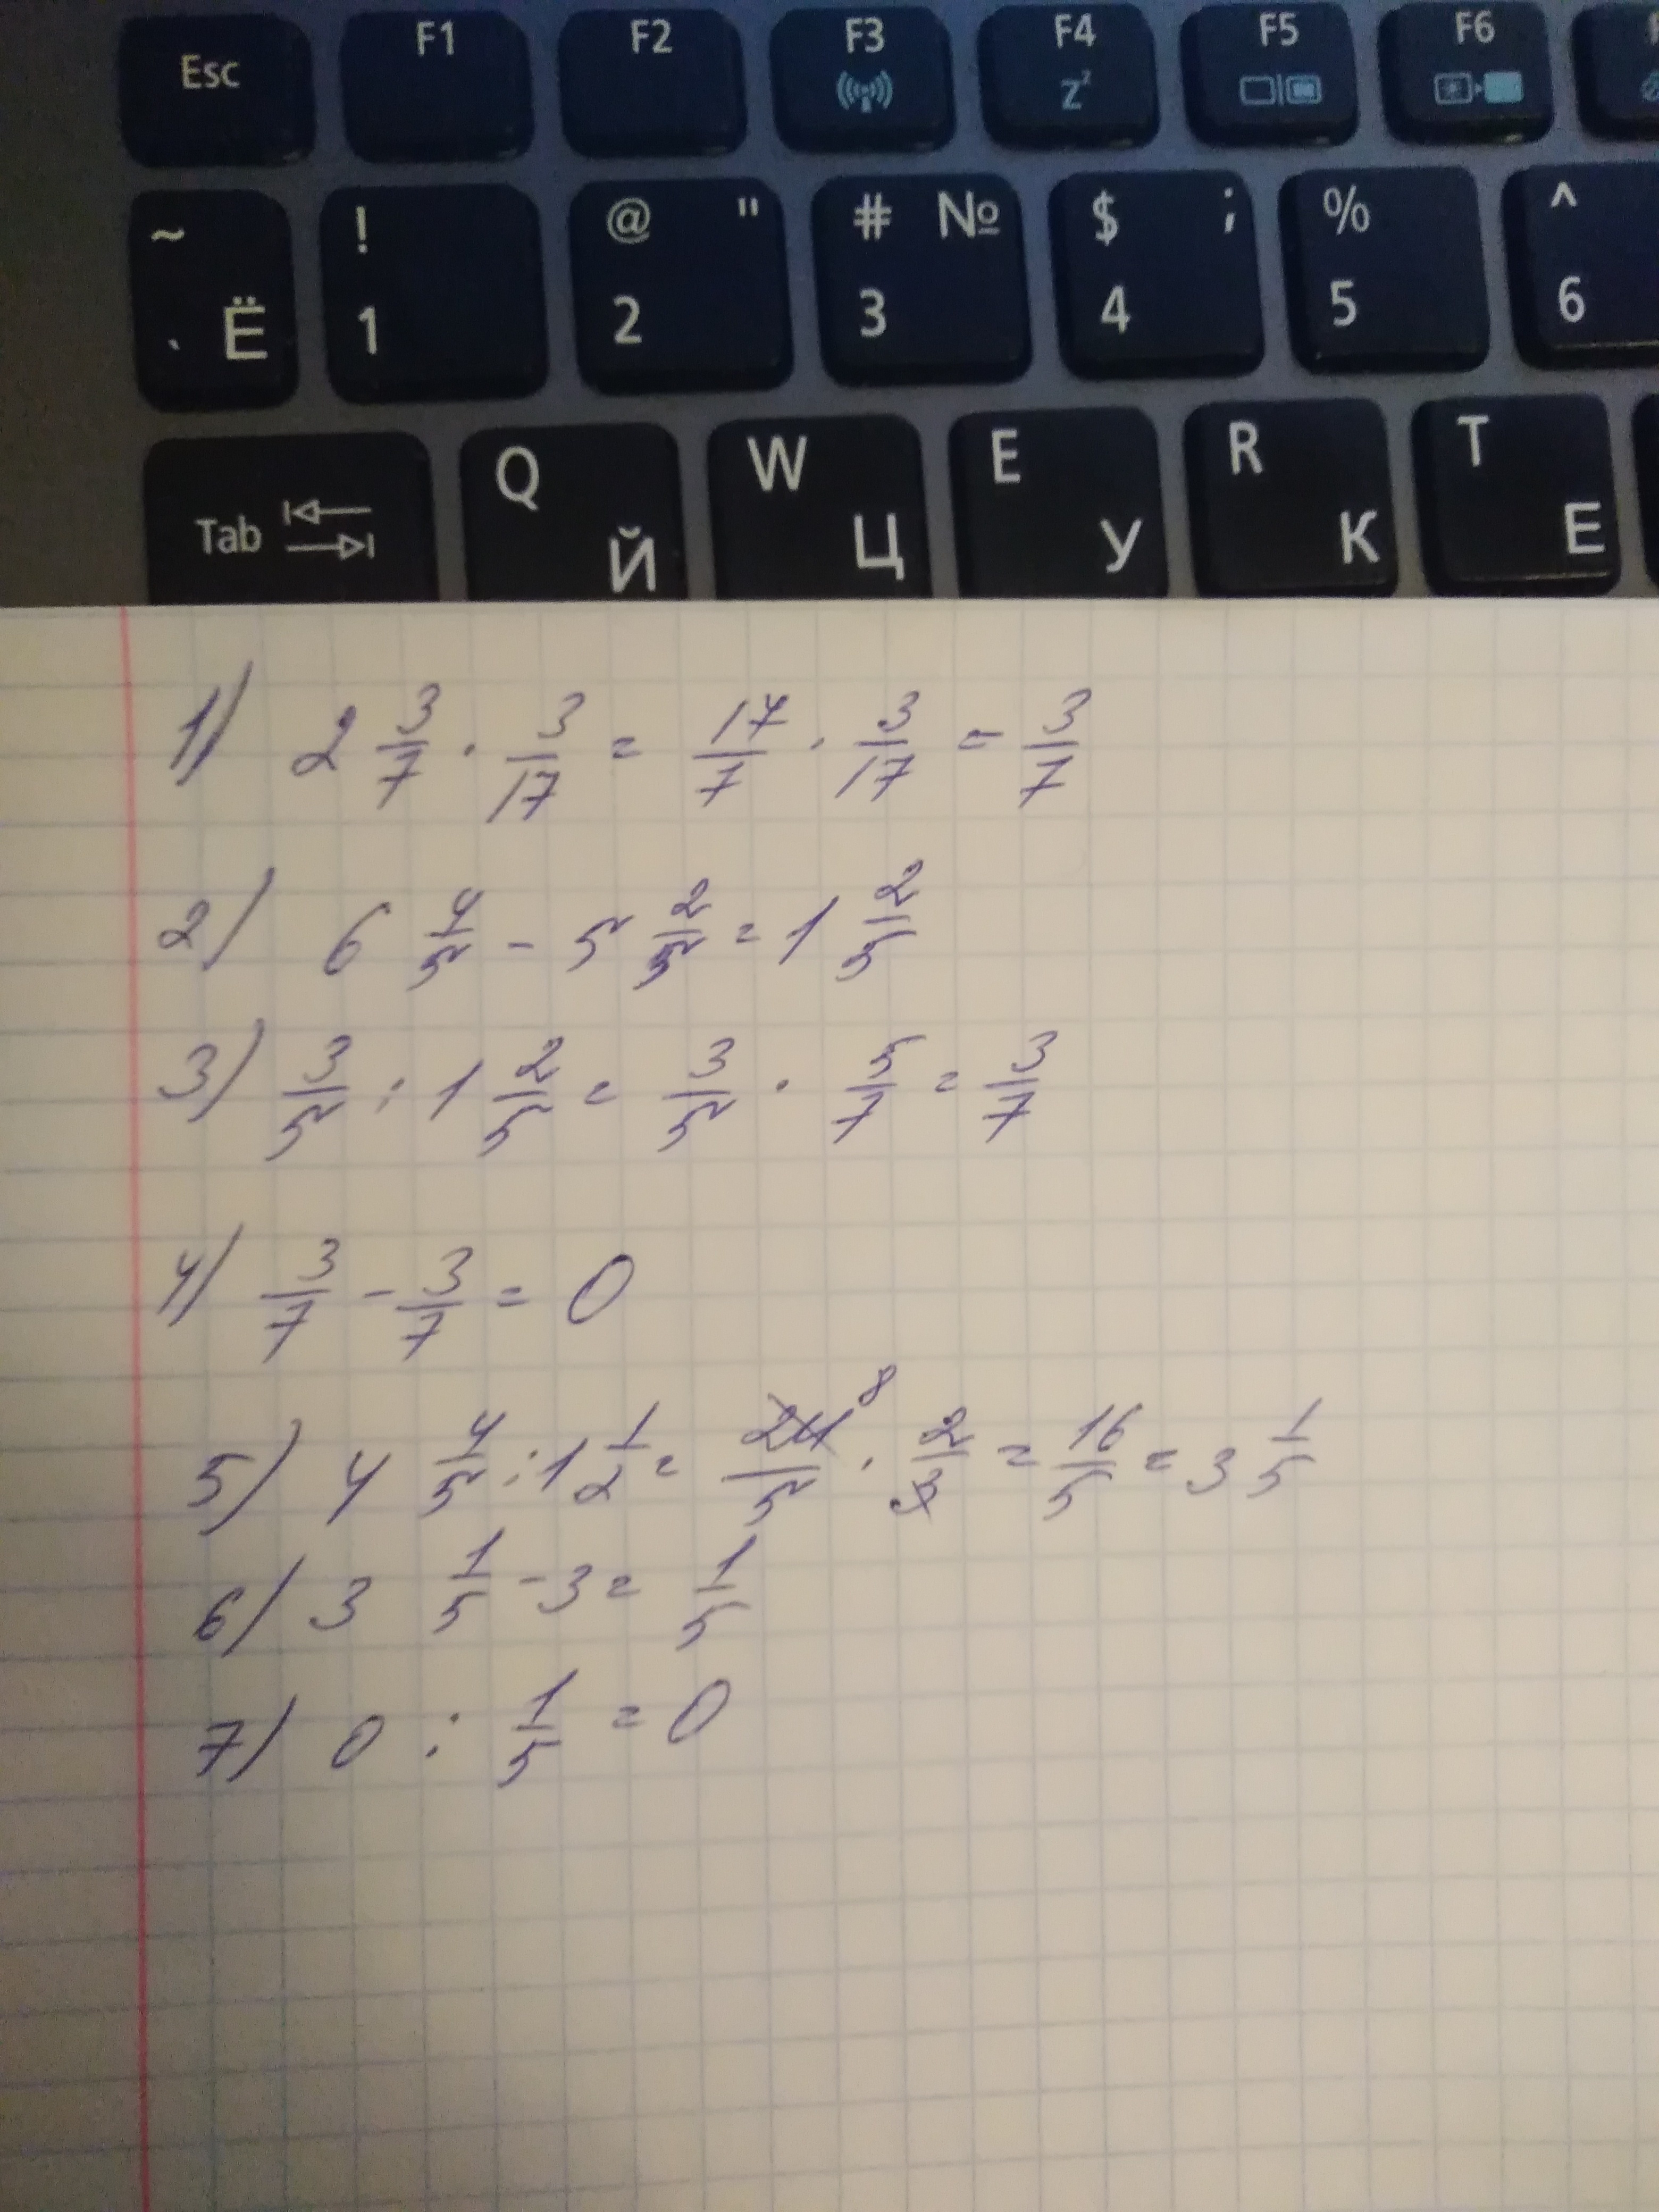 Esc F1 F2 F3 F4 Zᶻ F5 F6
~ ` Ё ! 1 @ " 2 # № 3 $ ; 4 % 5 ^ 6
Tab Q Й W Ц E У R К T Е
1) 2 3/7 · 3/17 = 17/7 · 3/17 = 3/7
2) 6 4/5 - 5 2/5 = 1 2/5
3) 3/5 : 1 2/5 = 3/5 · 5/7 = 3/7
4) 3/7 - 3/7 = 0
5) 4 4/5 : 1 1/2 = 24 8/5 · 2/3 = 16/5 = 3 1/5
6) 3 1/5 - 3 = 1/5
7) 0 : 1/5 = 0